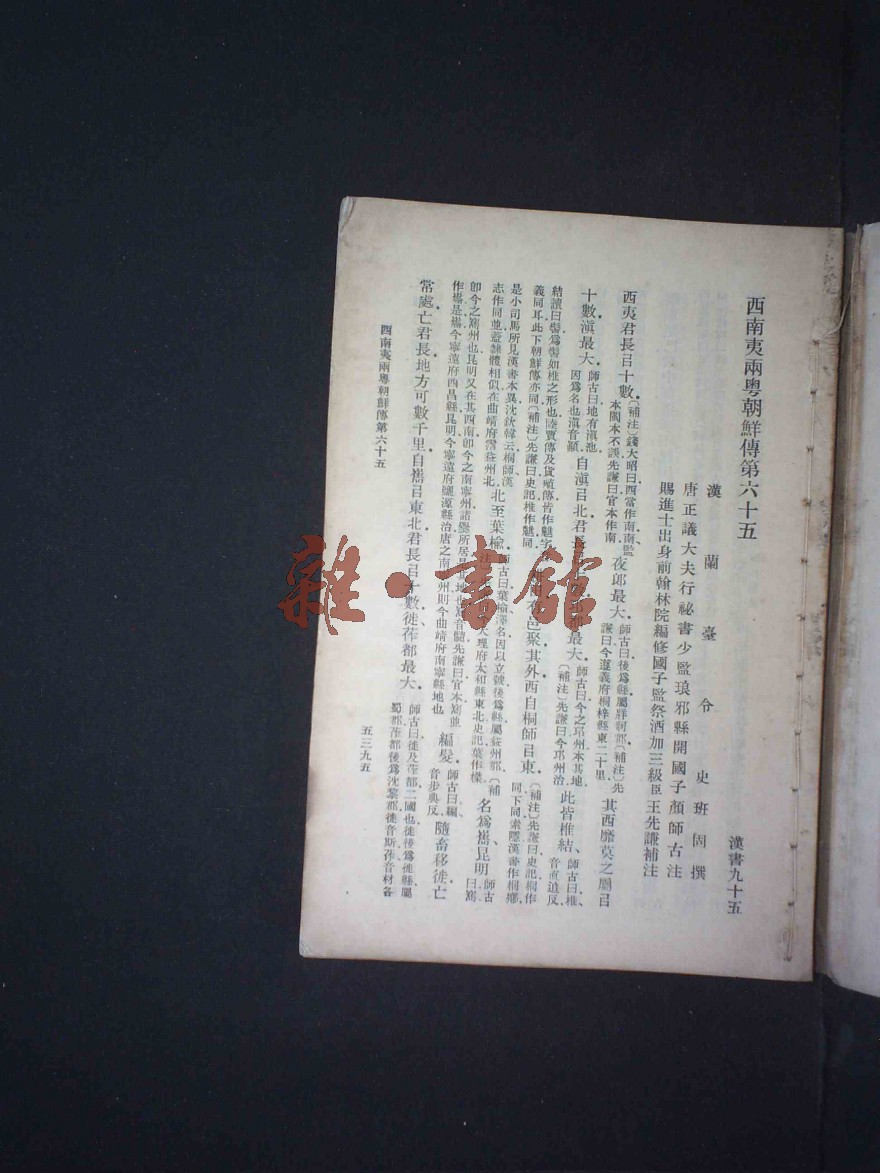 西南夷兩粵朝鮮傳第六十五
漢書九十五
漢蘭臺令史班固撰
唐正議大夫行祕書少監琅邪縣開國子顏師古注
賜進士出身前翰林院編修國子監祭酒加三級臣王先謙補注
西夷君長㠯十數〔補注〕錢大昭曰西當作南南監本閩本不誤先謙曰官本作南夜郎最大師古曰後爲縣屬牂柯郡〔補注〕先謙曰今遵義府桐梓縣東二十里其西靡莫之屬㠯
十數滇最大師古曰地有滇池因爲名也滇音顚自滇㠯北君長都最大師古曰今之邛州本其地〔補注〕先謙曰今邛州治此皆椎結師古曰椎音直追反
結讀曰髻爲髻如椎之形也陸賈傳及貨殖傳皆作魋字義同耳此下朝鮮傳亦同〔補注〕先謙曰史記椎作魋同邑聚其外西自桐師㠯東〔補注〕先謙曰史記桐作同下同索隱漢書作桐鄉
是小司馬所見漢書本異沈欽韓云桐師漢志作同並蓋隸體相似在曲靖府霑益州北北至葉榆師古曰葉榆澤名因以立號後爲縣屬益州郡〔補大理府太和縣東北史記葉作楪名爲嶲昆明師古曰嶲
卽今之嶲州也昆明又在其西南卽今之南寧州諸爨所居是其地也嶲音髓先謙曰官本嶲並作巂是巂今寧遠府西昌縣昆明今寧遠府鹽源縣治唐之南寧州則今曲靖府南寧縣地也編髮師古曰編音步典反隨畜移徙亡
常處亡君長地方可數千里自嶲㠯東北君長㠯十數徙莋都最大師古曰徙及莋都二國也徙後爲徙縣屬蜀郡莋都後爲沈黎郡徙音斯莋音材各
西南夷兩粵朝鮮傳第六十五
五三九五
雜·書館